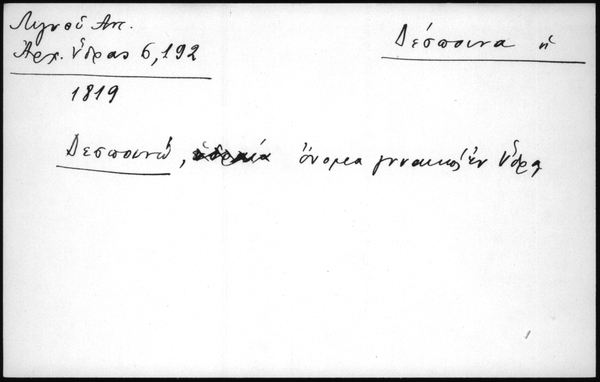 Λιγνού Αντ.
Αρχ. Ύδρας 6,192
1819
Δέσποινα ἡ
Δεσποινιώ, ὄνομα γυναικὸς ἐν Ὕδρᾳ